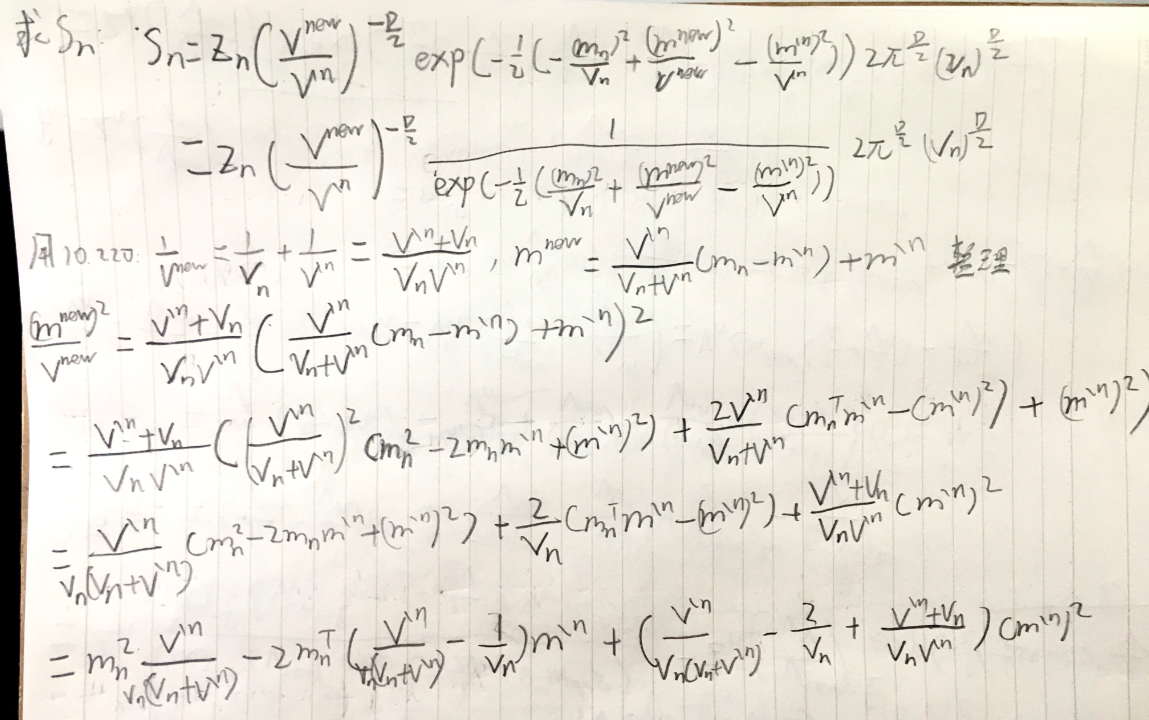 求Sₙ. Sₙ = Zₙ (V^new / V^\n)^(-D/2) exp(-1/2 (-(mₙ)²/Vₙ + (m^new)²/V^new - (m^\n)²/V^\n)) 2π^(D/2) (Vₙ)^(D/2)
= Zₙ (V^new / V^\n)^(-D/2) 1 / exp(-1/2 ((mₙ)²/Vₙ + (m^new)²/V^new - (m^\n)²/V^\n)) 2π^(D/2) (Vₙ)^(D/2)
用10.220. 1/V^new = 1/Vₙ + 1/V^\n = (V^\n + Vₙ) / (Vₙ V^\n), m^new = V^\n / (Vₙ + V^\n) (mₙ - m^\n) + m^\n 整理
(m^new)² / V^new = (V^\n + Vₙ) / (Vₙ V^\n) (V^\n / (Vₙ + V^\n) (mₙ - m^\n) + m^\n)²
= (V^\n + Vₙ) / (Vₙ V^\n) ((V^\n / (Vₙ + V^\n))² (mₙ² - 2mₙ m^\n + (m^\n)²) + 2V^\n / (Vₙ + V^\n) (mₙ^T m^\n - (m^\n)²) + (m^\n)²)
= V^\n / (Vₙ(Vₙ + V^\n)) (mₙ² - 2mₙ m^\n + (m^\n)²) + 2/Vₙ (mₙ^T m^\n - (m^\n)²) + (V^\n + Vₙ) / (Vₙ V^\n) (m^\n)²
= mₙ² V^\n / (Vₙ(Vₙ + V^\n)) - 2mₙ^T (V^\n / (Vₙ(Vₙ + V^\n)) - 1/Vₙ) m^\n + (V^\n / (Vₙ(Vₙ + V^\n)) - 2/Vₙ + (V^\n + Vₙ) / (Vₙ V^\n)) (m^\n)²